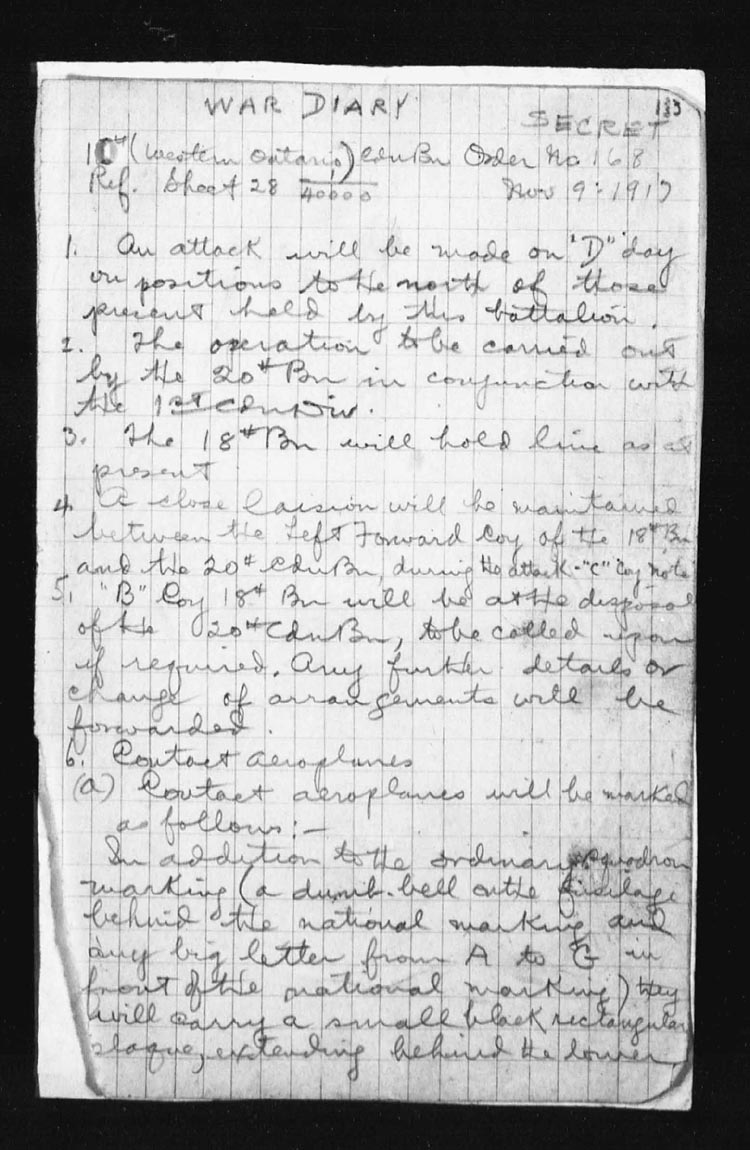 WAR DIARY
133
SECRET
(Western Ontario) Cdn Bn Order No 168
Ref. Sheet 28 1/40000 Nov 9: 1917
1. An attack will be made on "D" day
on positions to the north of those
present held by this battalion.
2. The operation to be carried out
by the 20th Bn in conjunction with
the 1st Cdn Div.
3. The 18th Bn will hold line as at
present
4. A close laision will be maintained
between the Left Forward Coy of the 18th Bn
and the 20th Cdn Bn, during the attack - "C" Coy note
5. "B" Coy 18th Bn will be at the disposal
of the 20th Cdn Bn, to be called upon
if required. Any further details or
change of arrangements will be
forwarded.
6. Contact aeroplanes
(a) Contact aeroplanes will be marked
as follows:-
In addition to the ordinary squadron
marking (a dumb-bell on the fusilage
behind the national marking and
any big letter from A to G in
front of the national marking) they
will carry a small black rectangular
plaque, extending behind the lower